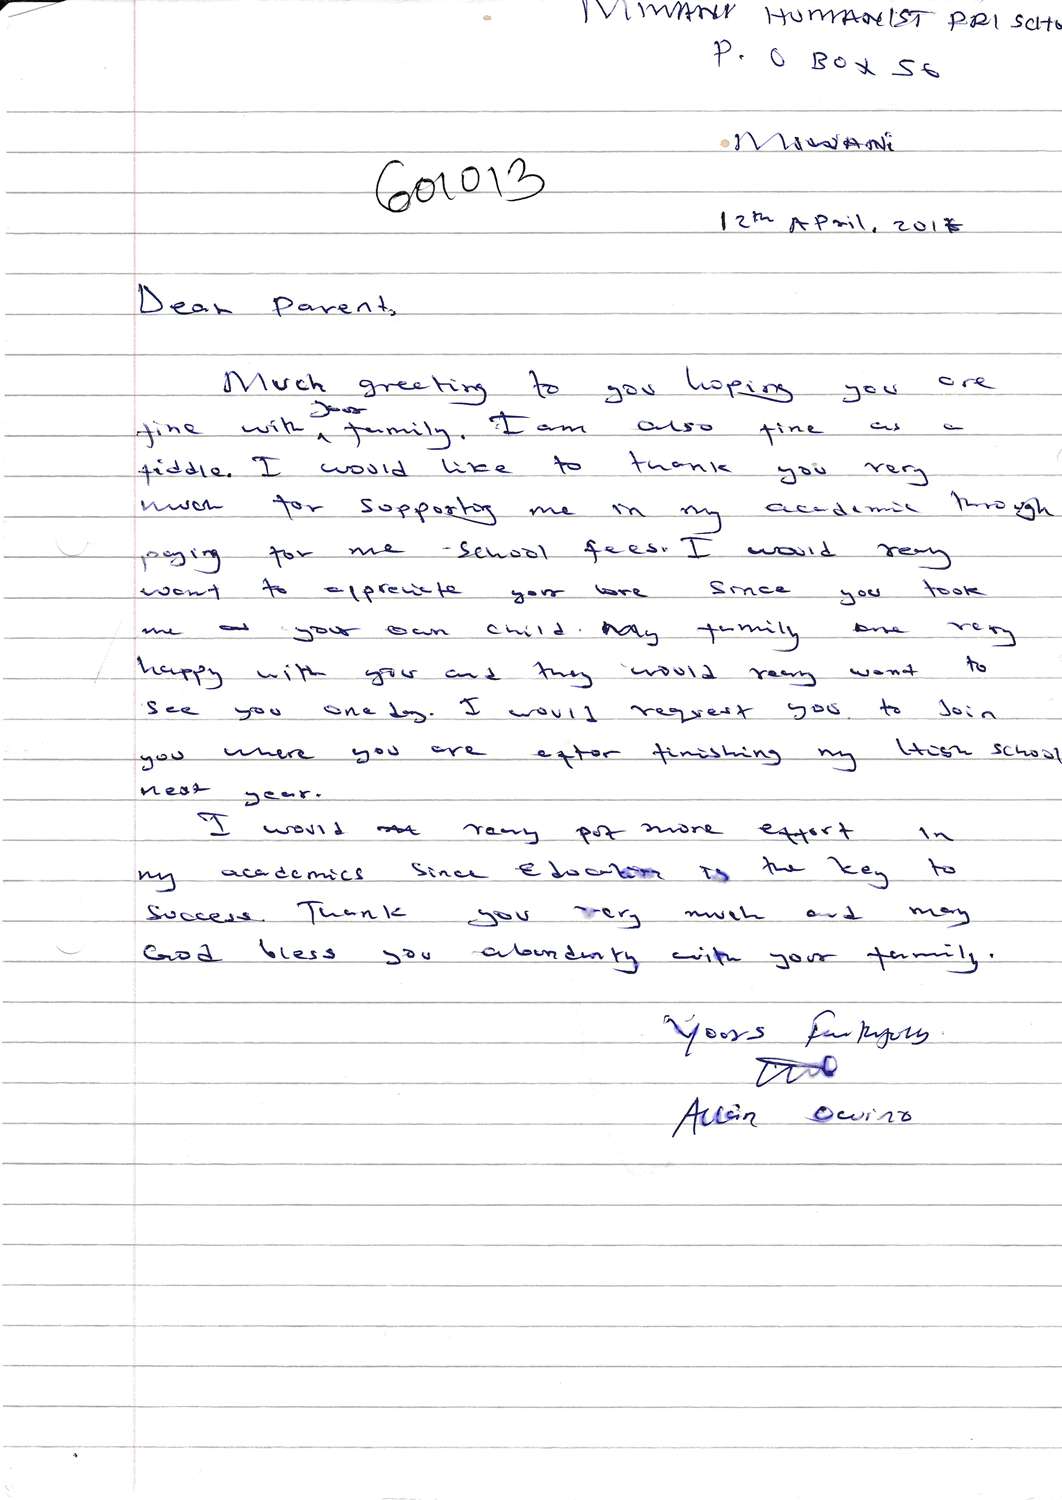 MIWANI HUMANIST PRI SCHO
P. O BOX 56
MIWANI
601013
12th April, 201
Dear Parent,
Much greeting to you hoping you are
fine with your family. I am also fine as a
fiddle. I would like to thank you very
much for supporting me in my academic through
paying for me school fees. I would really
want to appreciate your love since you took
me as your own child. My family are very
happy with your and they would really want to
see you one day. I would request you to Join
you where you are after finishing my High school
next year.
I would really put more effort in
my academics since Education is the key to
success. Thank you very much and may
God bless you abundantly with your family.
Yours
Allan Owino